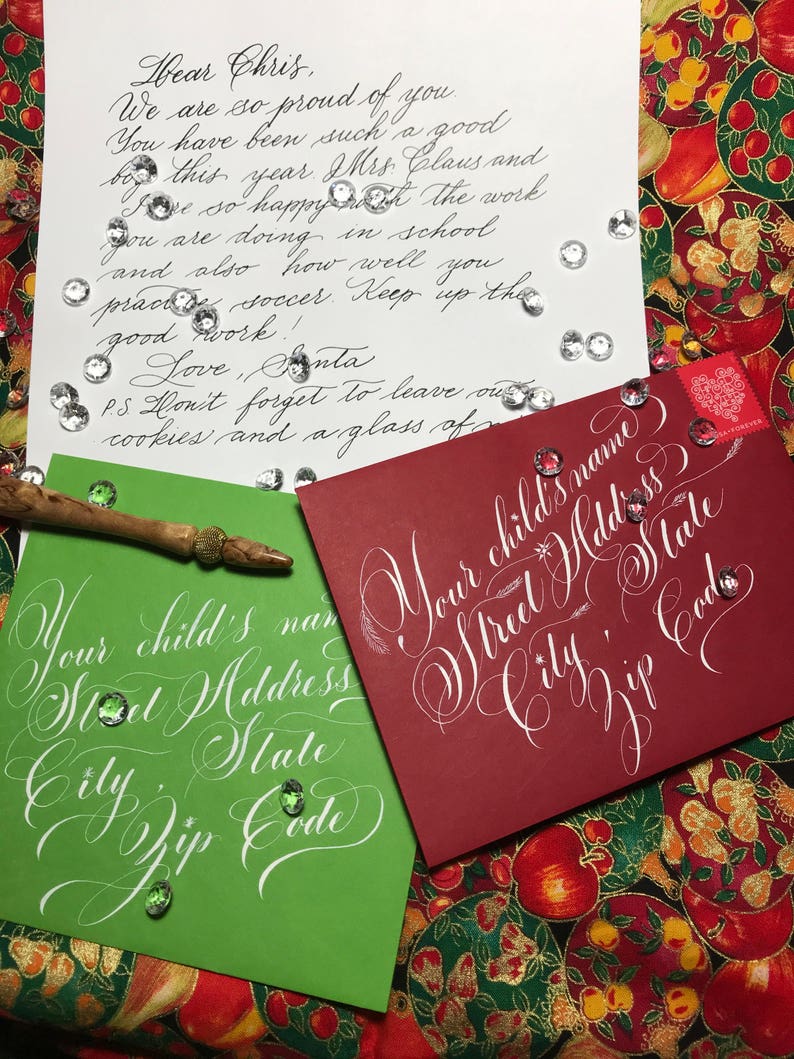 Dear Chris,
We are so proud of you.
You have been such a good
boy this year. Mrs. Claus and
I are so happy with the work
you are doing in school
and also how well you
practice soccer. Keep up the
good work!
Love, Santa
P.S. Don't forget to leave out
cookies and a glass of
Your child's name
Street Address
City, State
Zip Code
USA • FOREVER
Your child's name
Street Address
City, State
Zip Code